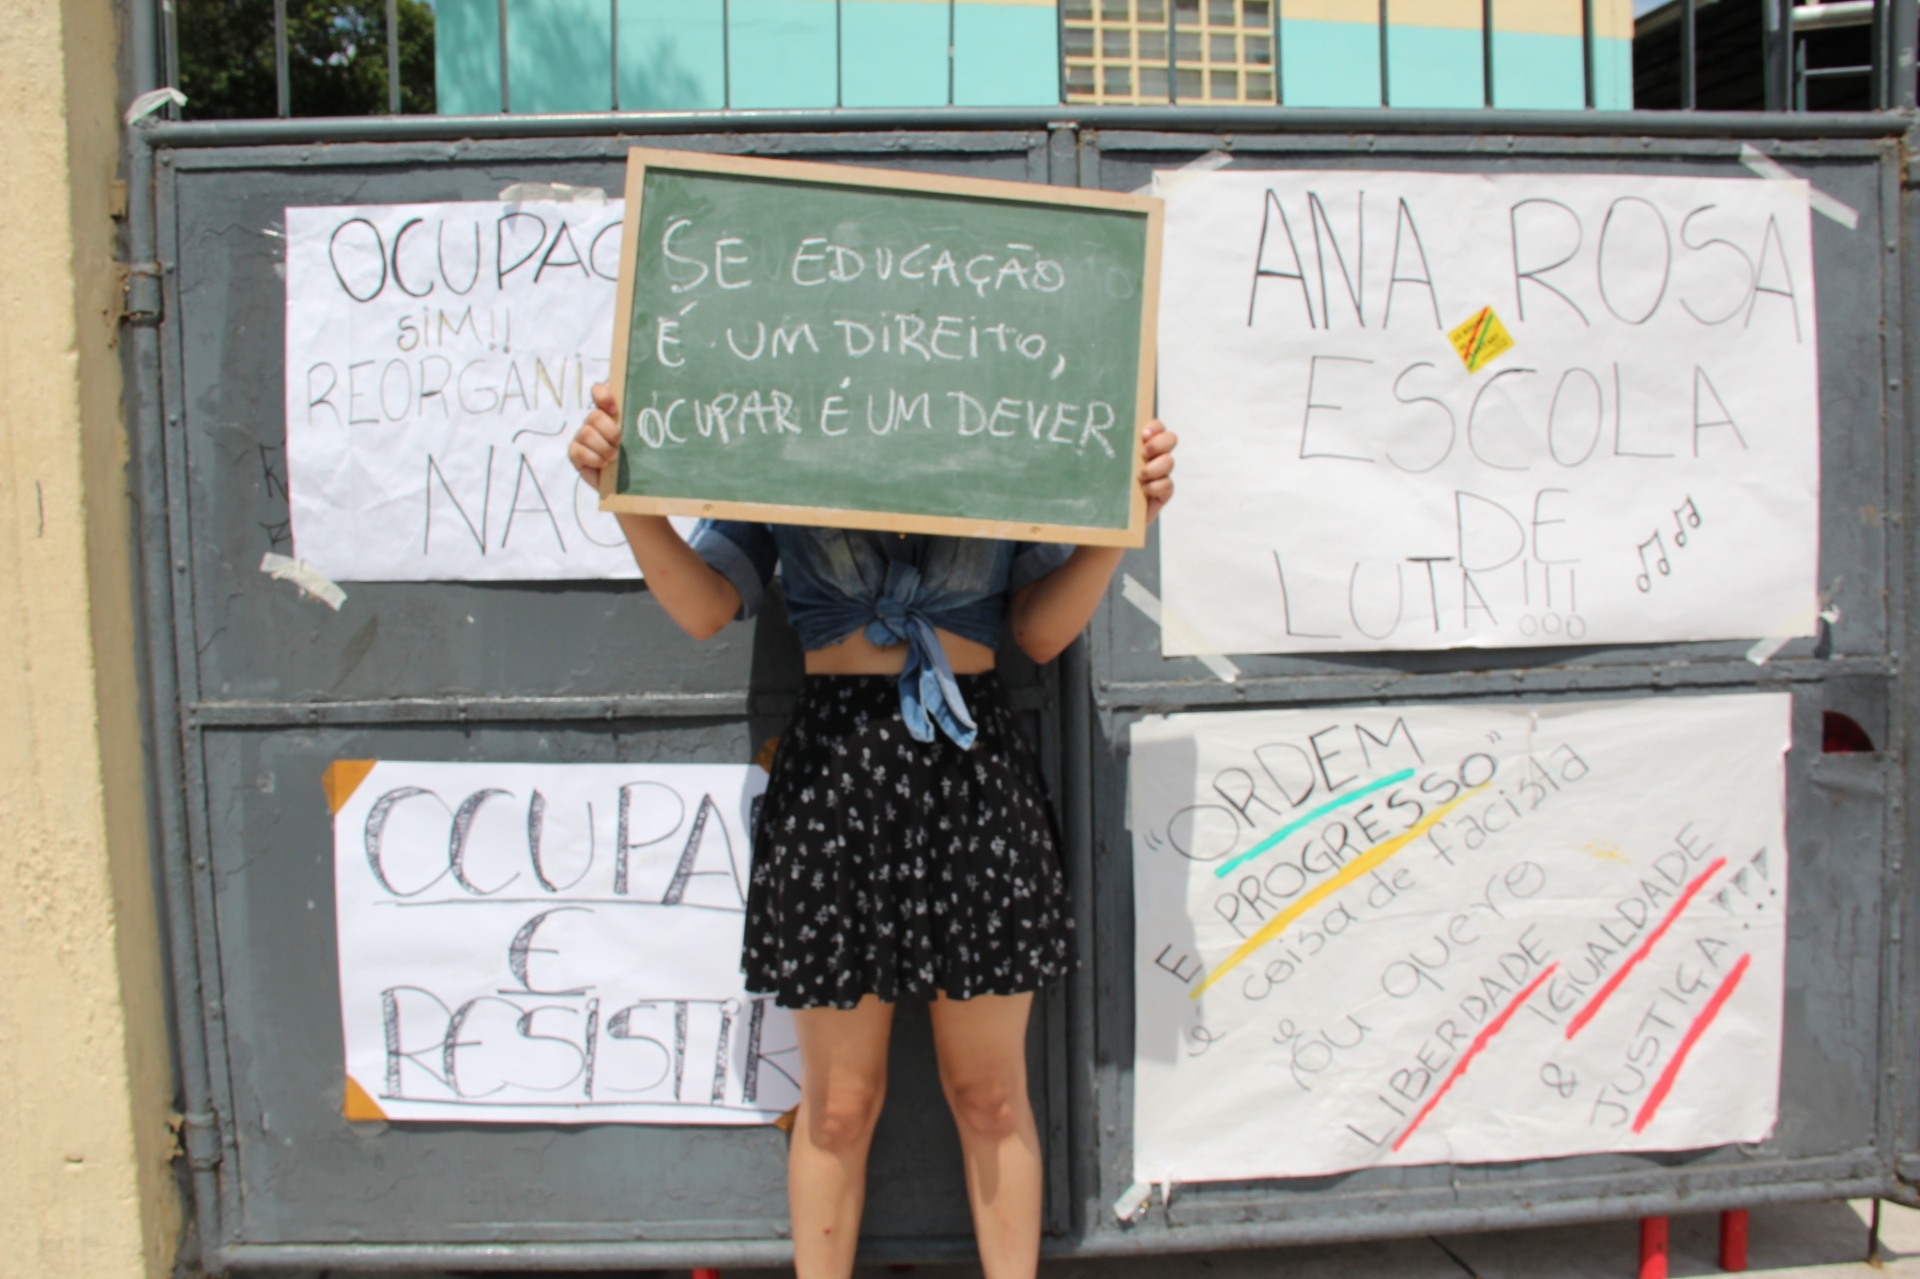 SE EDUCAÇÃO
É UM DIREITO,
OCUPAR É UM DEVER
OCUPAÇ
SIM!!
REORGANIZ
NÃO
ANA ROSA
ESCOLA
DE
LUTA!!!
OCUPA
E
RESISTIR
"ORDEM
E PROGRESSO"
é coisa de facista
EU quero
LIBERDADE
IGUALDADE
& JUSTIÇA!!!